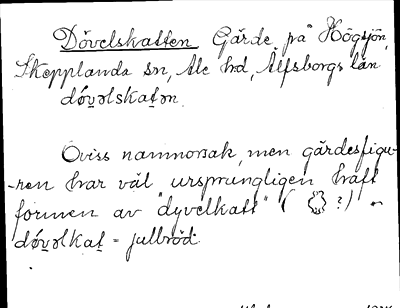 Dövelskatten Gärde på Högsjön,
Skepplanda sn, Ale hd, Älfsborgs län
dóvəlskatən.
Oviss namnorsak, men gärdesfigu-
-ren har väl ursprungligen haft
formen av "dyvelkatt" ( ?)
dóvəlkat = julbröd.